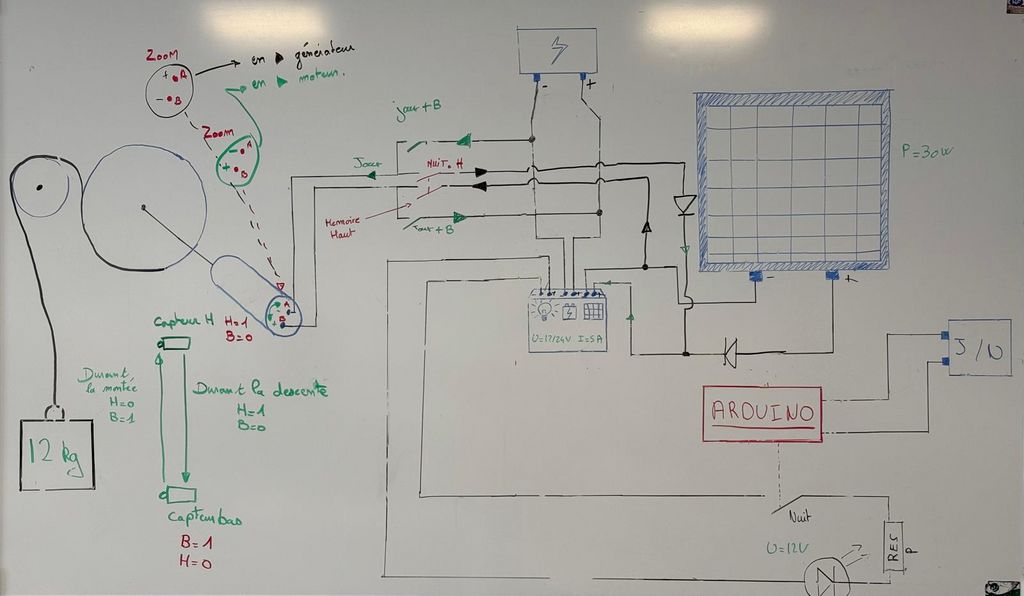 Zoom
+ A
- B
en ▶ générateur
en ▶ moteur.
Zoom
- A
+ B
jour + B
Jour
NUIT. H
Memoire
Haut
Jour + B
- +
P = 30W
- +
U=12/24V I=5A
A
B
Capteur H
H=1
B=0
Durant
la montée
H=0
B=1
Durant la descente
H=1
B=0
12 kg
Capteur bas
B=1
H=0
ARDUINO
J/N
Nuit
U=12V
RES
P